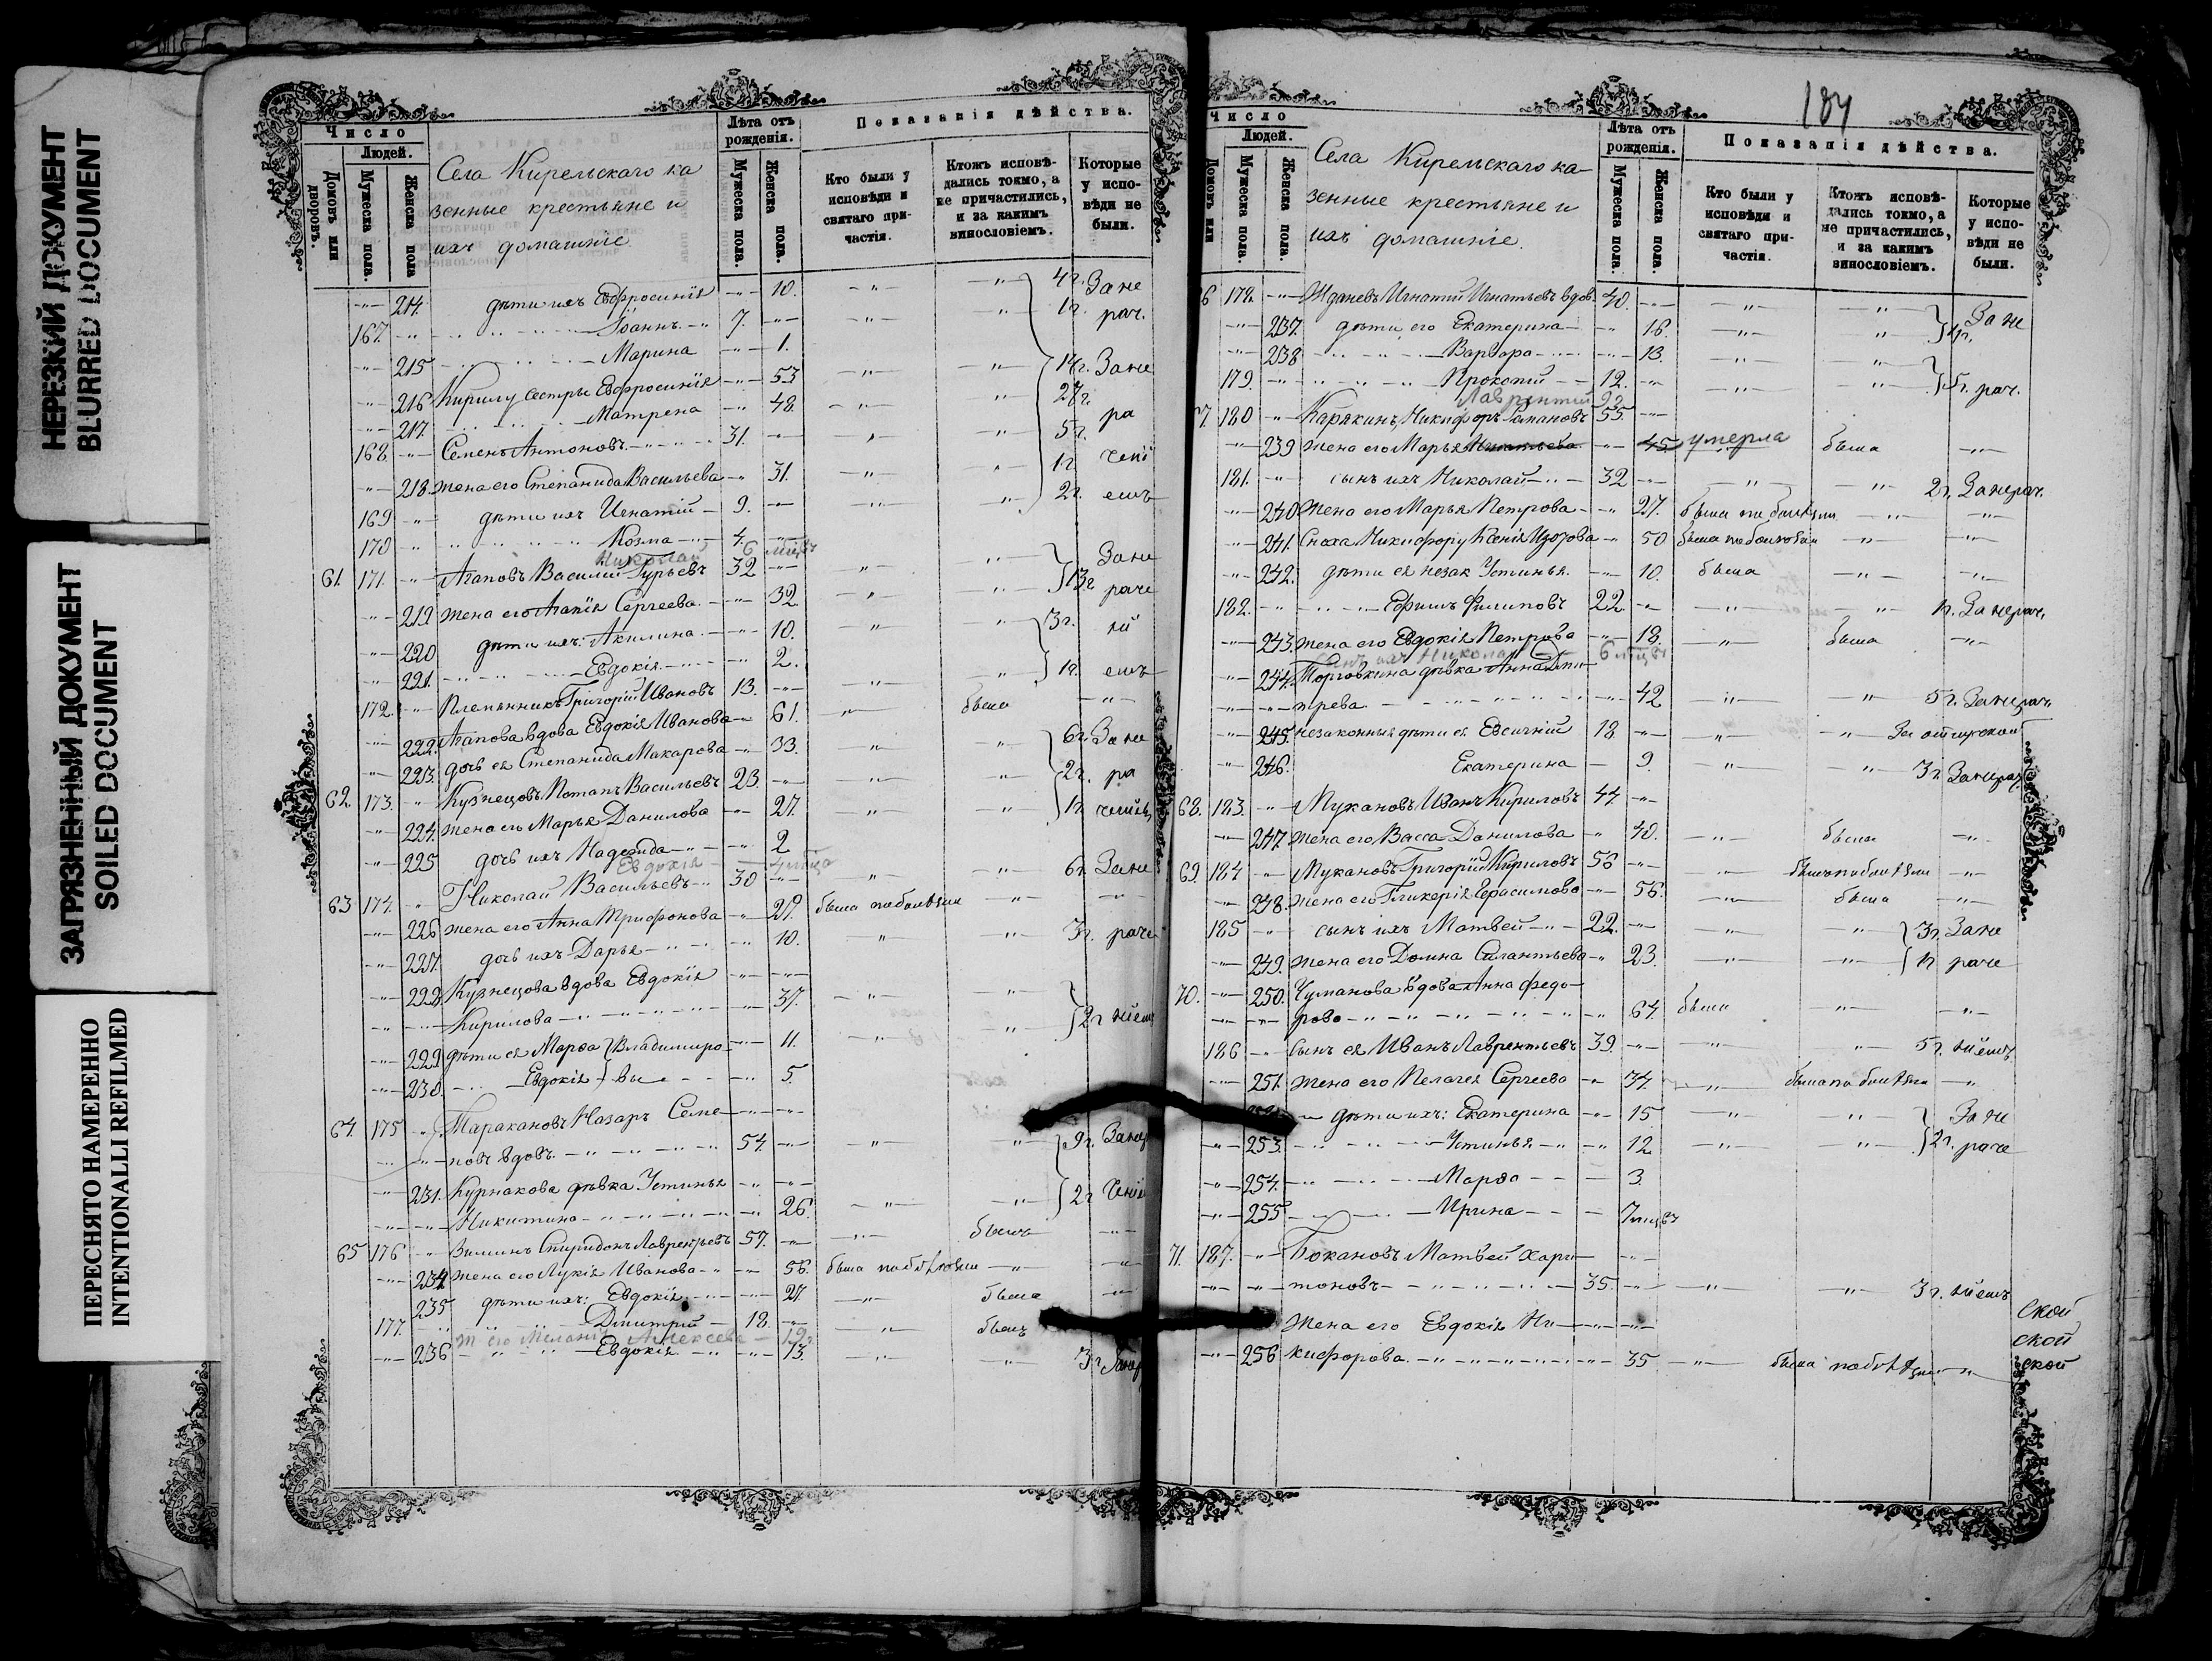 НЕРЕЗКИЙ ДОКУМЕНТ
BLURRED DOCUMENT
ЗАГРЯЗНЕННЫЙ ДОКУМЕНТ
SOILED DOCUMENT
ПЕРЕСНЯТО НАМЕРЕННО
INTENTIONALLI REFILMED
Число
Людей.
Домовъ или дворовъ.
Мужеска пола.
Женска пола
Села Кирельскаго ка
зенные крестьяне и
ихъ домашніе.
Лѣта отъ рожденія.
Мужеска пола.
Женска пола.
Показанія дѣйства.
Кто были у исповѣди и святаго при-
частія.
Ктожъ исповѣ-
дались токмо, а
не причастились,
и за какимъ
винословіемъ.
Которые
у испо-
вѣди не
были.
214. дѣти ихъ Евфросинія 10. 4 г. За не
167. Іоаннъ 7. 1 г. рач.
215 Марина 1.
216 Кирилу сестры Евфросинія 53 14 г. За не
217. Матрена 48. 27 г. ра
168. Семенъ Антоновъ 31. 5 г.
218. жена его Степанида Васильева 31. 1 г. чені
169 дѣти ихъ Игнатій 9. 2 г. емъ
170 Козма 4.
Николай 6 мцвъ
61. 171. Агаповъ Василій Гурьевъ 32 13 г. За не
219 жена его Агапія Сергеева 32. раче
220 дѣти ихъ: Акилина 10. 3 г. ні
221. Евдокія 2.
172. Племянникъ Григорій Ивановъ 13. 1 г. емъ
222. Агапова вдова Евдокія Иванова 61. была
223. дочь ея Степанида Макарова 33. 6 г. За не
62. 173. Кузнецовъ Потапъ Васильевъ 23. 2 г. ра
224. жена его Марья Данилова 21. 1 г.
225 дочь ихъ Надежда 2
Евдокія 4 мца
63 174. Николай Васильевъ 30 6 г. За не
226 жена его Анна Трифонова 29. была по болѣзни
227. дочь ихъ Дарья 10. 3 г. раче
228. Кузнецова вдова Евдокія
Кирилова 37.
229. дѣти ея Марѳа Владимиро 11. 2 г. ніемъ
230. Евдокія вы 5.
64. 175 Таракановъ Назаръ Семе
новъ вдовъ 54. 9 г. За нер
231. Курнакова дѣвка Устинья
Никитина 26. 2 г.
65 176 Зиминъ Спиридонъ Лаврентьевъ 57. былъ
234 жена его Лукія Иванова 56. была по болѣзни
235 дѣти ихъ: Евдокія 21. была
177. Дмитрій 18. былъ
ж его Меланія Алексеева 19
236 Евдокія 13. 3 г.
184
Число
Людей.
Домовъ или
Мужеска пола.
Женска пола.
Села Кирельскаго ка-
зенные крестьяне и
ихъ домашніе.
Лѣта отъ рожденія.
Мужеска пола.
Женска пола.
Показанія дѣйства.
Кто были у
исповѣди и
святаго при-
частія.
Ктожъ исповѣ-
дались токмо, а
не причастились,
и за какимъ
винословіемъ.
Которые
у испо-
вѣди не
были.
6 178. Ждановъ Игнатій Игнатьевъ вдов. 40.
237. дѣти его Екатерина 16. 4 г. За не
238 Варвара 13.
179. Прокопій 12. 5 г. рач.
Лаврентій 92
7. 180 Карякинъ Никифоръ Романовъ 55.
239 жена его Марья Игнатьева 45 умерла была
181. сынъ ихъ Николай 32 2 г. За нерач.
240 жена его Марья Петрова 27. была по болѣзни
241. Сноха Никифору Ксенія Изотова 50 была по болѣзни
242. дѣти ея незак Устинья 10. была
182. Ефимъ Филиповъ 22 1 г. За нерач.
243. жена его Евдокія Петрова 18. была
сынъ ихъ Николай 6 мцвъ
244. Торговкина дѣвка Анна Дми
трева 42 5 г. За нерач.
245. незаконныя дѣти ея Евсигній 18 За отлучкой
246. Екатерина 9. 3 г. За нерач
68. 183. Мукановъ Иванъ Кириловъ 44.
247 жена его Васса Данилова 40. была
69. 184 Мукановъ Григорій Кириловъ 56 былъ по болѣзни
248. жена его Гликерія Герасимова 56. была
185 сынъ ихъ Матвей 22. 3 г. За не
249. жена его Домна Силантьева 23. 1 г. раче
70. 250. Чуманова вдова Анна Федо
рова 64. была
186 сынъ ея Иванъ Лаврентьевъ 39. 5 г. ніемъ
251. жена его Пелагея Сергеева 34 была по болѣзни
дѣти ихъ: Екатерина 15. За не
253. Устинья 12. 2 г. раче
254. Марѳа 3.
255 Ирина 7 мцвъ
71. 187. Бокановъ Матвей Хари
тоновъ 35. 3 г. ніемъ
жена его Евдокія Ни
256 кифорова 35 была по болѣзни
ской
ской
ской